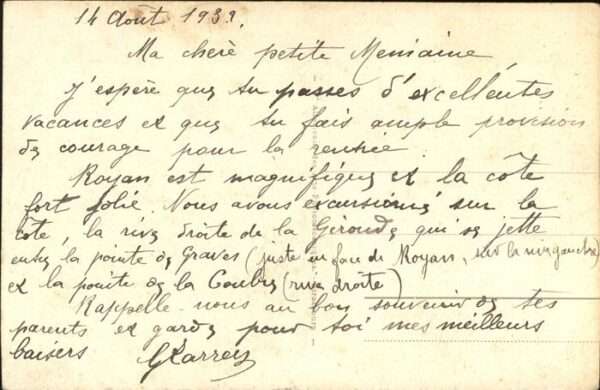 14 Août 1932.
Ma chère petite
J'espère que tu passes d'excellentes
vacances et que tu fais ample provision
de courage pour la rentrée
Royan est magnifique et la côte
fort jolie. Nous avons excursionné sur la
côte, la rive droite de la Gironde qui se jette
entre la pointe de Graves (juste en face de Royan, sur la rive gauche)
et la pointe de la Coubre (rive droite)
Rappelle-nous au bon souvenir de tes
parents et garde pour toi mes meilleurs
baisers